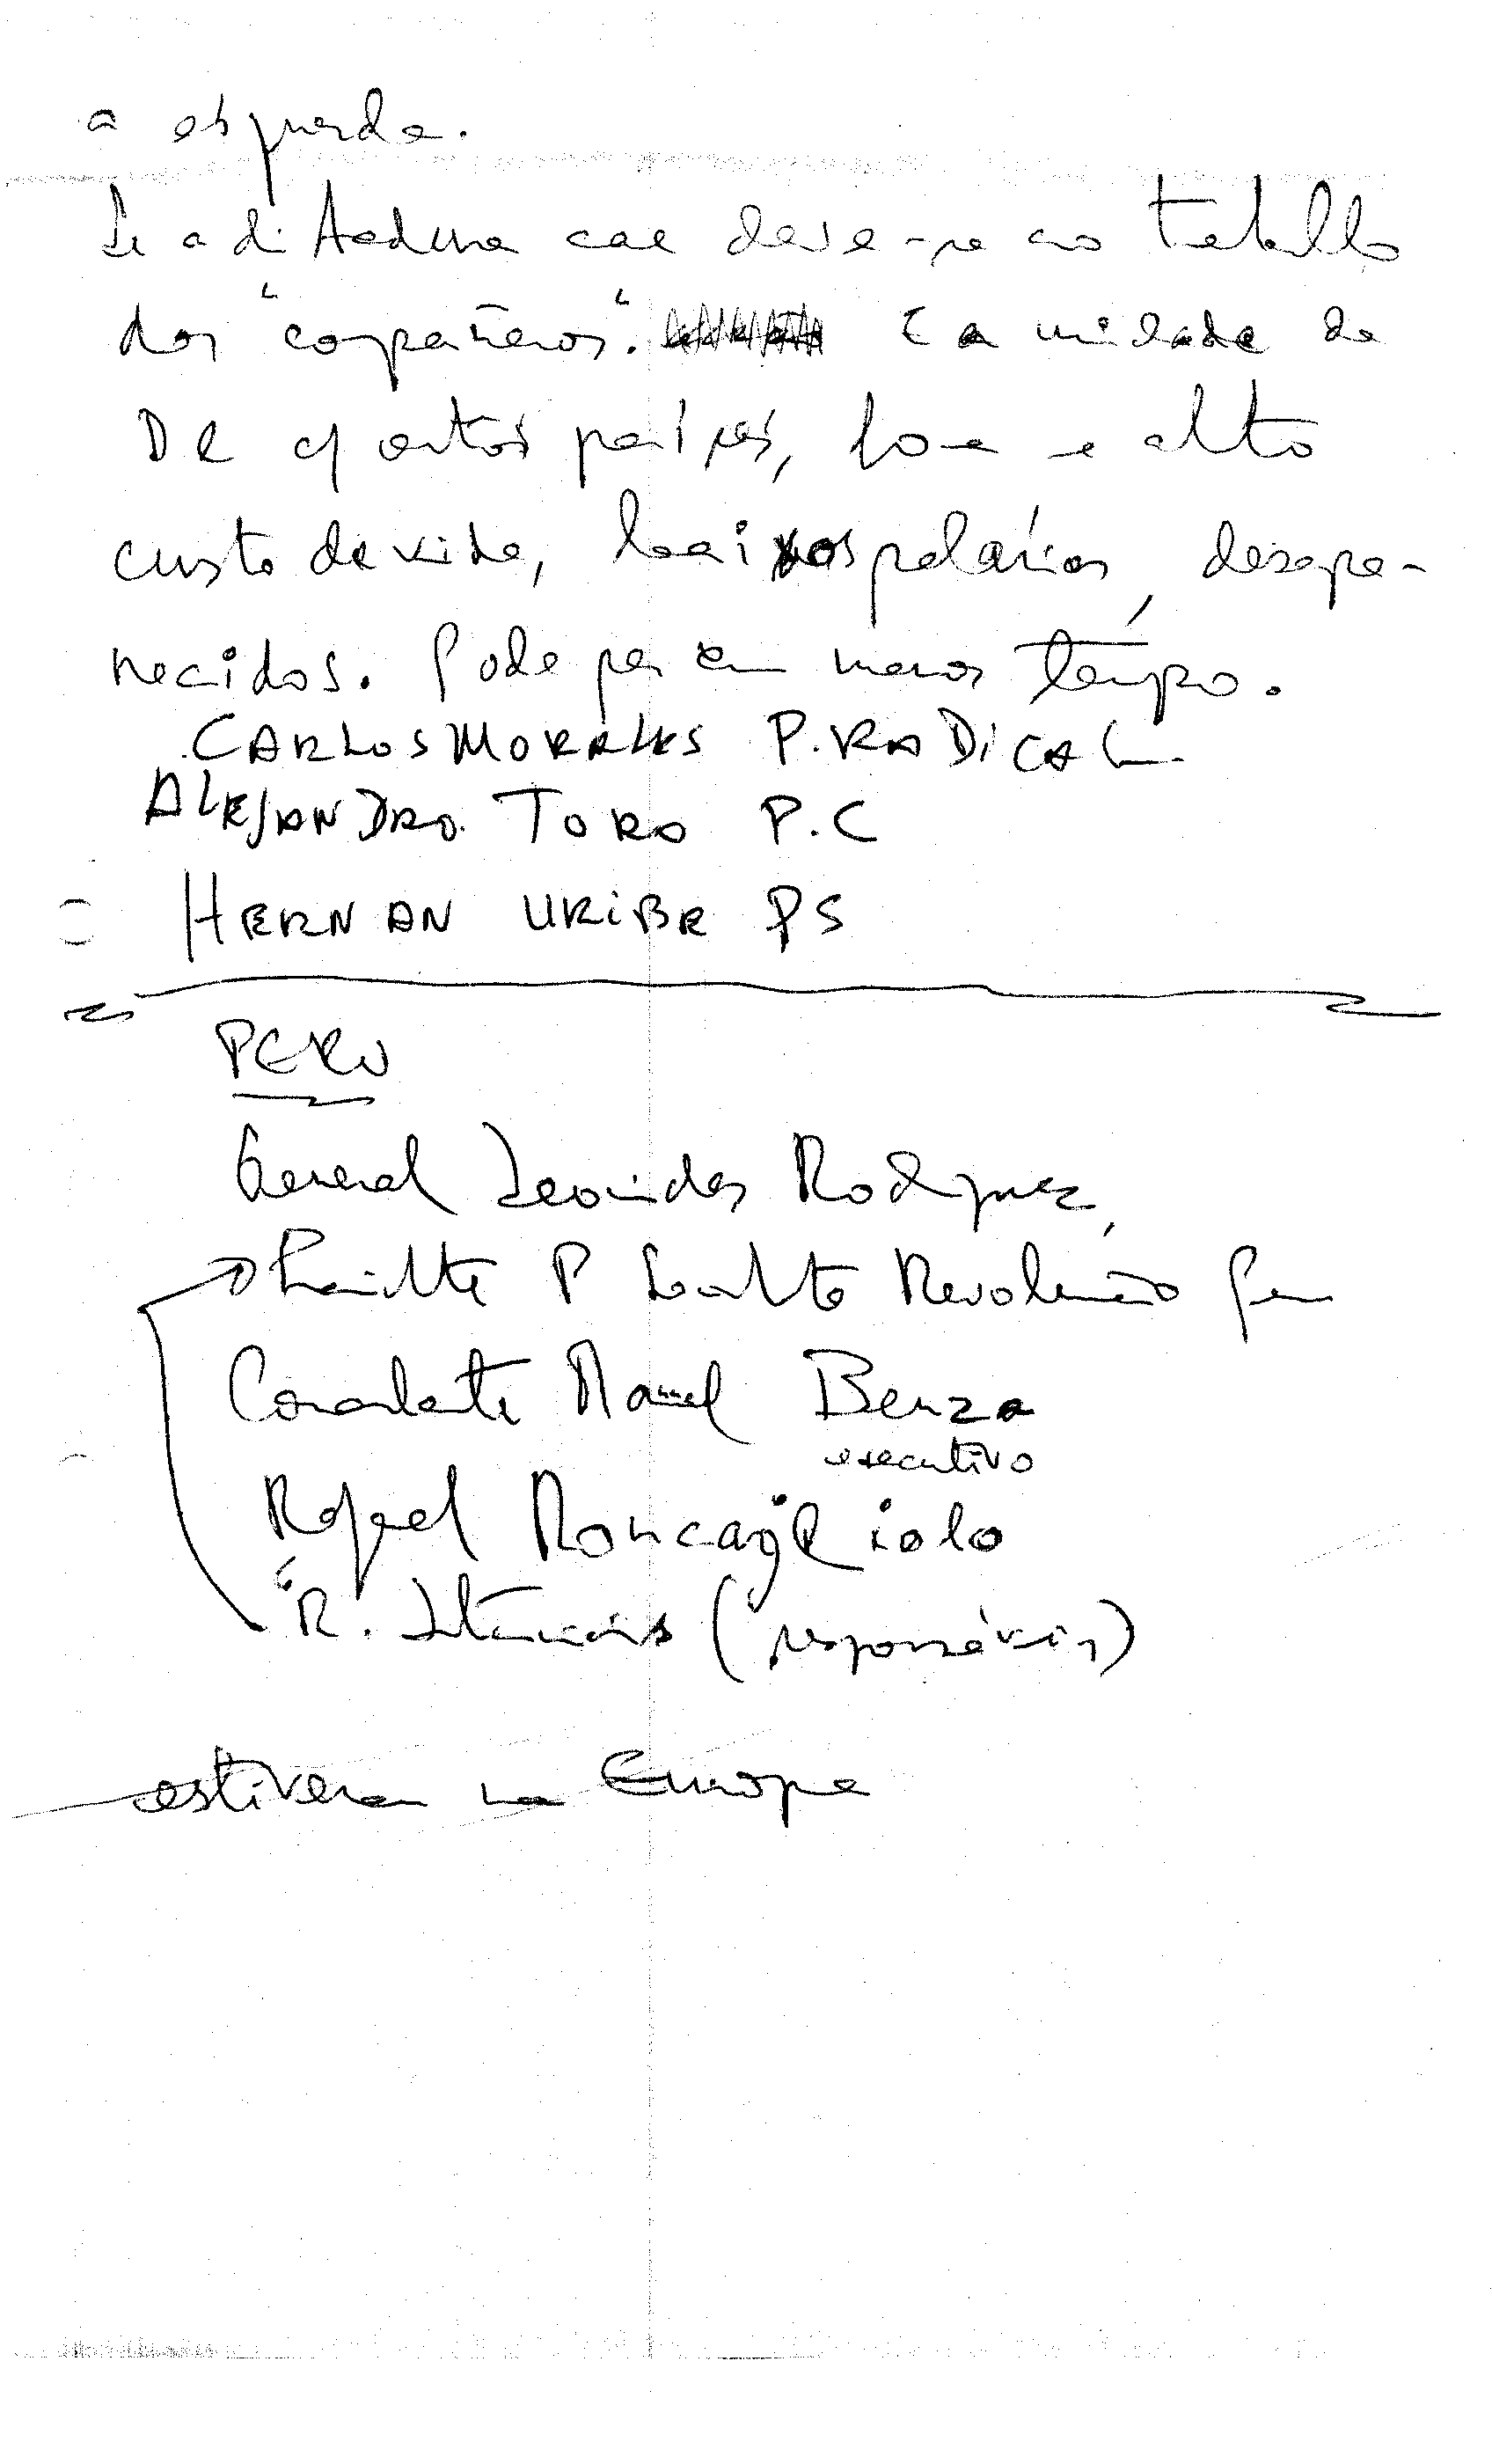 a esquerda.
Se a ditadura cae deve-se ao trabalho
dos "compañeros". E a unidade da
DR c/ outros países, fome e alto
custo de vida, baixos salários, desapa-
recidos. Pode ser em menos tempo.
CARLOS MORALES P. RADICAL
ALEJANDRO TORO P.C
HERNAN URIBE PS
PERU
General Leonidas Rodriguez,
P Socialista Revolucionário
Comandante Manuel Benza
executivo
Rafael Roncagliolo
"R. (responsáveis)
estiveram na Europa